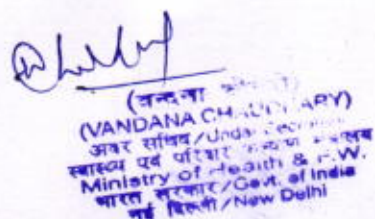 (वन्दना
(VANDANA CHAUDHARY)
अवर सचिव/Under
स्वास्थ्य एवं परिवार कल्याण
Ministry of Health & F.W.
भारत सरकार/Govt. of India
नई दिल्ली/New Delhi